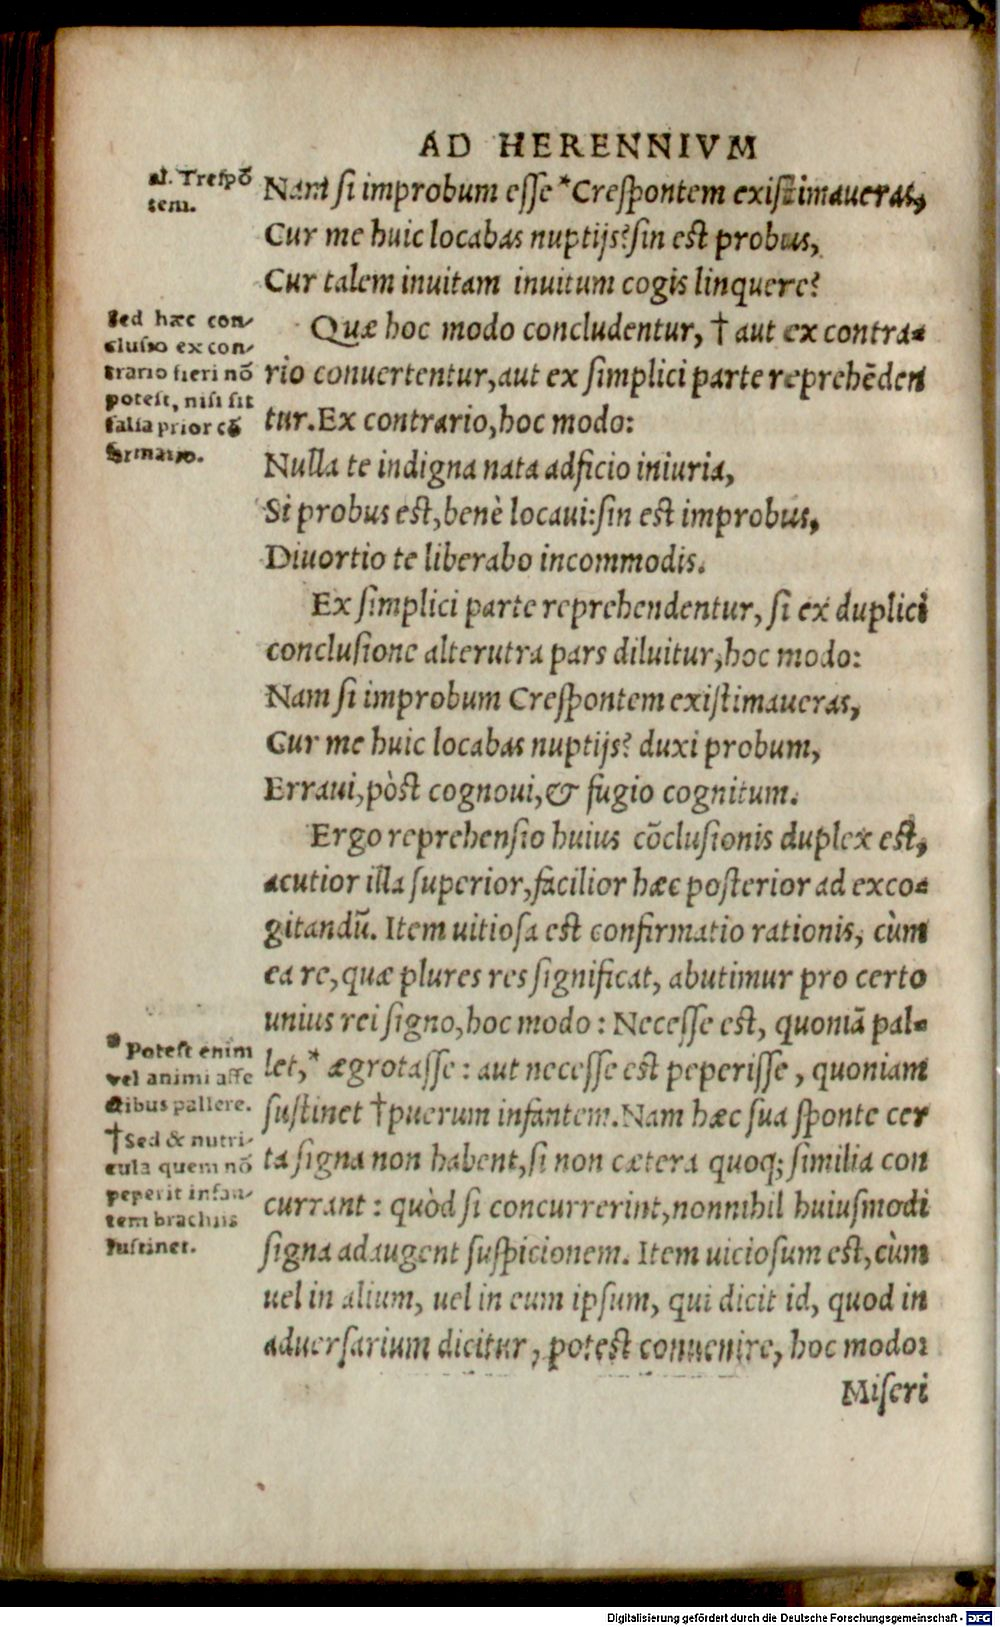 AD HERENNIVM
al. Trespõ
tem.
Nam si improbum esse *Crespontem existimaueras,
Cur me huic locabas nuptijs? sin est probus,
Cur talem inuitam inuitum cogis linquere?
Sed hæc con-
clusio ex con-
trario fieri nõ
potest, nisi sit
falsa prior cõ
firmatio.
Quæ hoc modo concludentur, † aut ex contra-
rio conuertentur, aut ex simplici parte reprehẽden
tur. Ex contrario, hoc modo:
Nulla te indigna nata adficio iniuria,
Si probus est, benè locaui: sin est improbus,
Diuortio te liberabo incommodis.
Ex simplici parte reprehendentur, si ex duplici
conclusione alterutra pars diluitur, hoc modo:
Nam si improbum Crespontem existimaueras,
Cur me huic locabas nuptijs? duxi probum,
Erraui, pòst cognoui, & fugio cognitum.
Ergo reprehensio huius cõclusionis duplex est,
acutior illa superior, facilior hæc posterior ad exco-
gitandũ. Item uitiosa est confirmatio rationis, cùm
ea re, quæ plures res significat, abutimur pro certo
unius rei signo, hoc modo: Necesse est, quoniã pal-
let, * ægrotasse: aut necesse est peperisse, quoniam
sustinet † puerum infantem. Nam hæc sua sponte cer
ta signa non habent, si non cætera quoq; similia con
currant: quòd si concurrerint, nonnihil huiusmodi
signa adaugent suspicionem. Item uiciosum est, cùm
uel in alium, uel in eum ipsum, qui dicit id, quod in
aduersarium dicitur, potest conuenire, hoc modo:
* Potest enim
vel animi affe
ctibus pallere.
† Sed & nutri-
cula quem nõ
peperit infan-
tem brachiis
sustinet.
Miseri
Digitalisierung gefördert durch die Deutsche Forschungsgemeinschaft - DFG